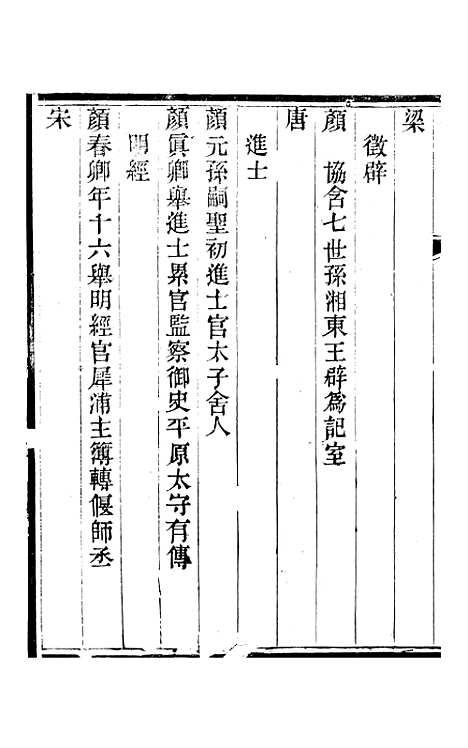 梁
徵辟
顏　協含七世孫湘東王辟為記室
唐
進士
顏元孫嗣聖初進士官太子舍人
顏眞卿舉進士累官監察御史平原太守有傳
明經
顏春卿年十六舉明經官犀浦主簿轉偃師丞
宋